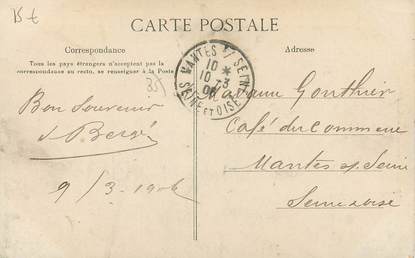 15 €
CARTE POSTALE
Correspondance
Adresse
Tous les pays étrangers n'acceptent pas la
correspondance au recto, se renseigner à la Poste
MANTES S/ SEINE
10 *
10 - 3
06
SEINE ET OISE
35
Bon Souvenir
Gonthier
Café du Commerce
9/3-1906
Mantes s/ Seine
Seine & Oise